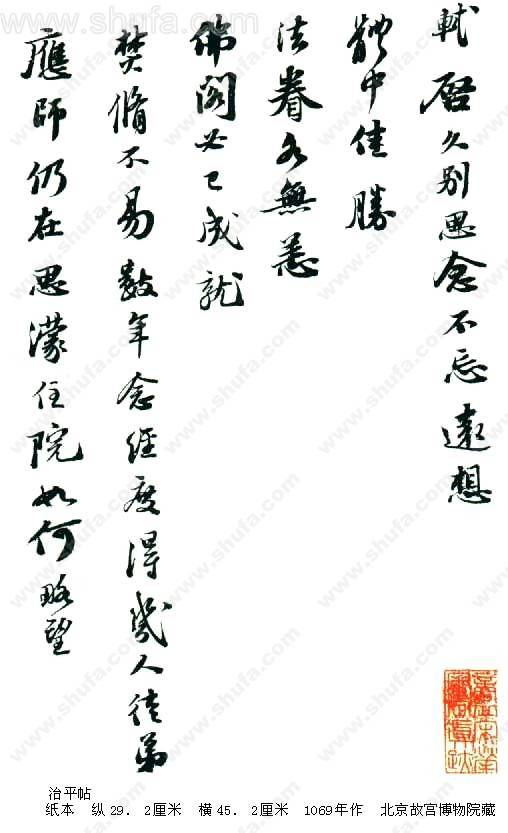 軾啓久別思念不忘遠想
體中佳勝
法眷各無恙
佛閣必已成就
焚脩不易數年念經度得幾人徒弟
應師仍在思濛住院如何略望
治平帖
纸本 纵29．2厘米 横45．2厘米 1069年作 北京故宫博物院藏
www.shufa.com